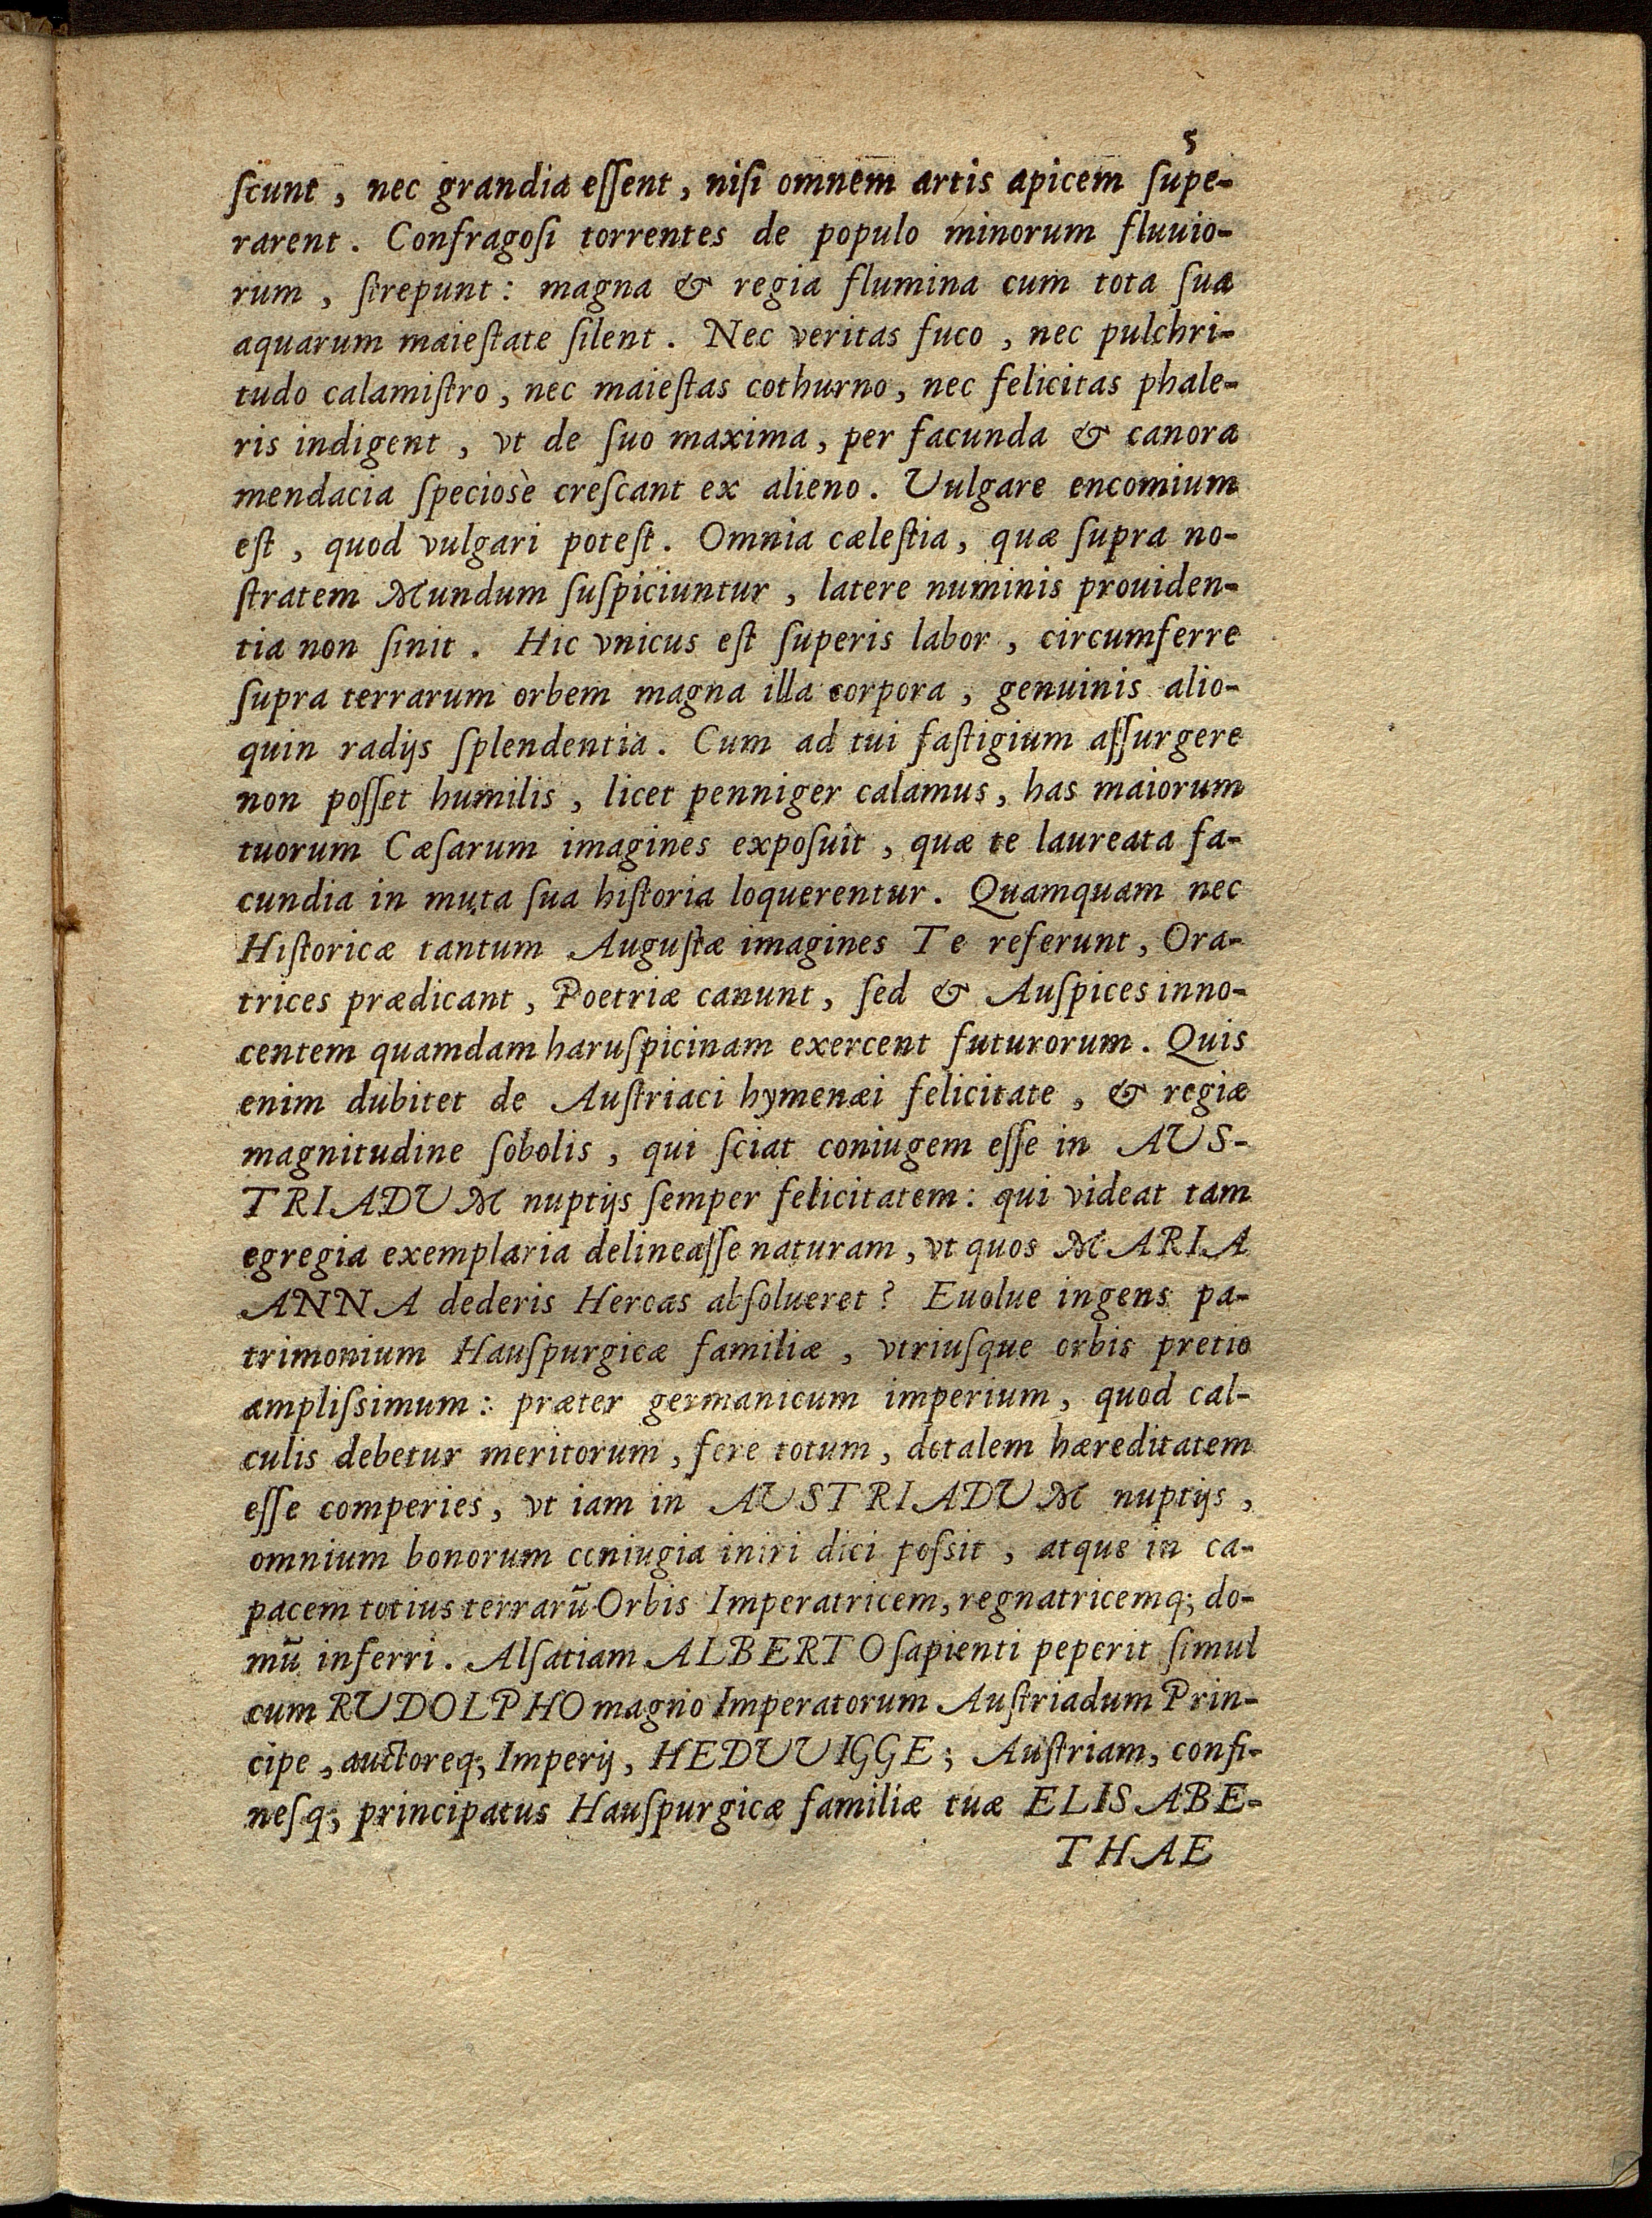 5
ſcunt, nec grandia eſſent, niſi omnem artis apicem ſupe-
rarent. Confragoſi torrentes de populo minorum fluuio-
rum, ſtrepunt: magna & regia flumina cum tota ſua
aquarum maieſtate ſilent. Nec veritas fuco, nec pulchri-
tudo calamiſtro, nec maieſtas cothurno, nec felicitas phale-
ris indigent, vt de ſuo maxima, per facunda & canora
mendacia ſpeciosè creſcant ex alieno. Vulgare encomium
eſt, quod vulgari poteſt. Omnia cæleſtia, quæ ſupra no-
ſtratem Mundum ſuſpiciuntur, latere numinis prouiden-
tia non ſinit. Hic vnicus eſt ſuperis labor, circumferre
ſupra terrarum orbem magna illa corpora, genuinis alio-
quin radijs ſplendentia. Cum ad tui faſtigium aſſurgere
non poſſet humilis, licet penniger calamus, has maiorum
tuorum Cæſarum imagines expoſuit, quæ te laureata fa-
cundia in muta ſua hiſtoria loquerentur. Quamquam nec
Hiſtoricæ tantum Auguſtæ imagines Te referunt, Ora-
trices prædicant, Poetriæ canunt, ſed & Auſpices inno-
centem quamdam haruſpicinam exercent futurorum. Quis
enim dubitet de Auſtriaci hymenæi felicitate, & regiæ
magnitudine ſobolis, qui ſciat coniugem eſſe in AUS-
TRIADUM nuptijs ſemper felicitatem: qui videat tam
egregia exemplaria delineaſſe naturam, vt quos MARIA
ANNA dederis Heroas abſolueret? Euolue ingens pa-
trimonium Hauſpurgicæ familiæ, vtriuſque orbis pretio
ampliſsimum: præter germanicum imperium, quod cal-
culis debetur meritorum, fere totum, dotalem hæreditatem
eſſe comperies, vt iam in AUSTRIADUM nuptijs,
omnium bonorum coniugia iniri dici poſsit, atque in ca-
pacem totius terrarū Orbis Imperatricem, regnatricemq; do-
mū inferri. Alſatiam ALBERTO ſapienti peperit ſimul
cum RUDOLPHO magno Imperatorum Auſtriadum Prin-
cipe, auctoreq; Imperij, HEDUUIGGE; Auſtriam, confi-
neſq; principatus Hauſpurgicæ familiæ tuæ ELISABE-
THAE